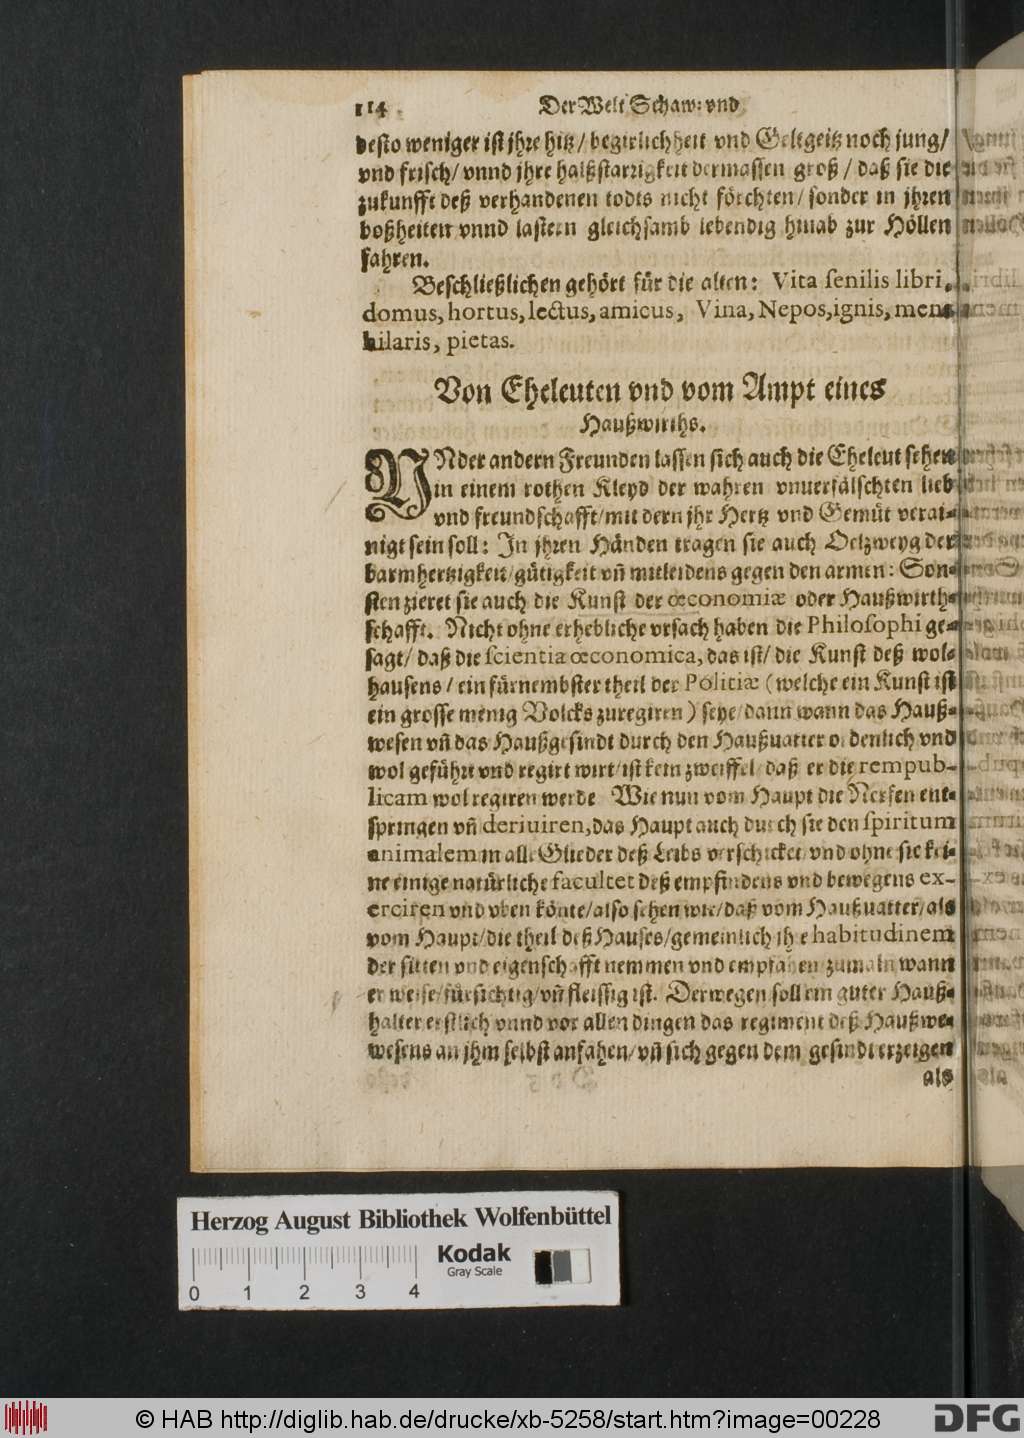 114 Der Welt Schaw: vnd
desto weniger ist jhre hitz / begirlichheit vnd Geltgeitz noch jung/
vnd frisch/ vnnd jhre halßstarrigkeit dermassen groß / daß sie die
zukunfft deß verhandenen todts nicht förchten/ sonder in jhren
boßheiten vnnd lastern gleichsamb lebendig hinab zur Höllen
fahren.
Beschließlichen gehört für die alten: Vita senilis libri,
domus, hortus, lectus, amicus, Vina, Nepos, ignis, mens
hilaris, pietas.
Von Eheleuten vnd vom Ampt eines
Haußwirths.
VNder andern Freunden lassen sich auch die Eheleut sehen
in einem rothen Kleyd der wahren vnuerfälschten lieb
vnd freundschafft/ mit dern jhr Hertz vnd Gemüt verai-
nigt sein soll: In jhren Händen tragen sie auch Oelzweyg der
barmhertzigkeit/ gütigkeit vñ mitleidens gegen den armen: Son-
sten zieret sie auch die Kunst der œconomiæ oder Haußwirth-
schafft. Nicht ohne erhebliche vrsach haben die Philosophi ge-
sagt/ daß die scientia œconomica, das ist/ die Kunst deß wol-
hausens / ein fürnembster theil der Politiæ (welche ein Kunst ist
ein grosse menig Volcks zuregiren) seye/ dann wann das Hauß-
wesen vñ das Haußgesindt durch den Haußuatter ordenlich vnd
wol geführt vnd regirt wirt/ ist kein zweiffel/ daß er die rempub-
licam wol regiren werde Wie nun vom Haupt die Nerfen ent-
springen vñ deriuiren, das Haupt auch durch sie den spiritum
animalem in alle Glieder deß Leibs verschicket/ vnd ohne sie kei-
ne einige natürliche facultet deß empfindens vnd bewegens ex-
erciren vnd vben könte/ also sehen wir/ daß vom Haußuatter/ als
vom Haupt/ die theil deß Hauses/ gemeinlich jhre habitudinem
der sitten vnd eigenschafft nemmen vnd empfahen/ zumaln wann
er weise/ fürsichtig/ vñ fleissig ist. Derwegen soll ein guter Hauß-
halter erstlich vnnd vor allen dingen das regiment deß Haußwe-
wesens an jhm selbst anfahen/ vñ sich gegen dem gesindt erzeigen
als
Herzog August Bibliothek Wolfenbüttel
Kodak
Gray Scale
0 1 2 3 4
© HAB http://diglib.hab.de/drucke/xb-5258/start.htm?image=00228
DFG